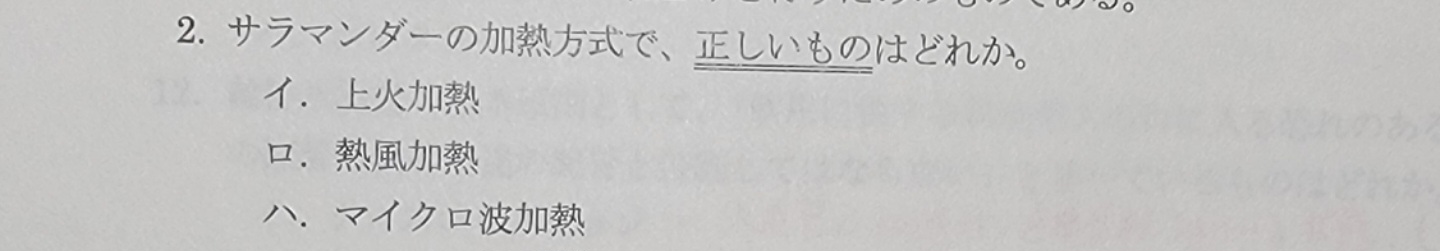 2. サラマンダーの加熱方式で、正しいものはどれか。
イ. 上火加熱
ロ. 熱風加熱
ハ. マイクロ波加熱